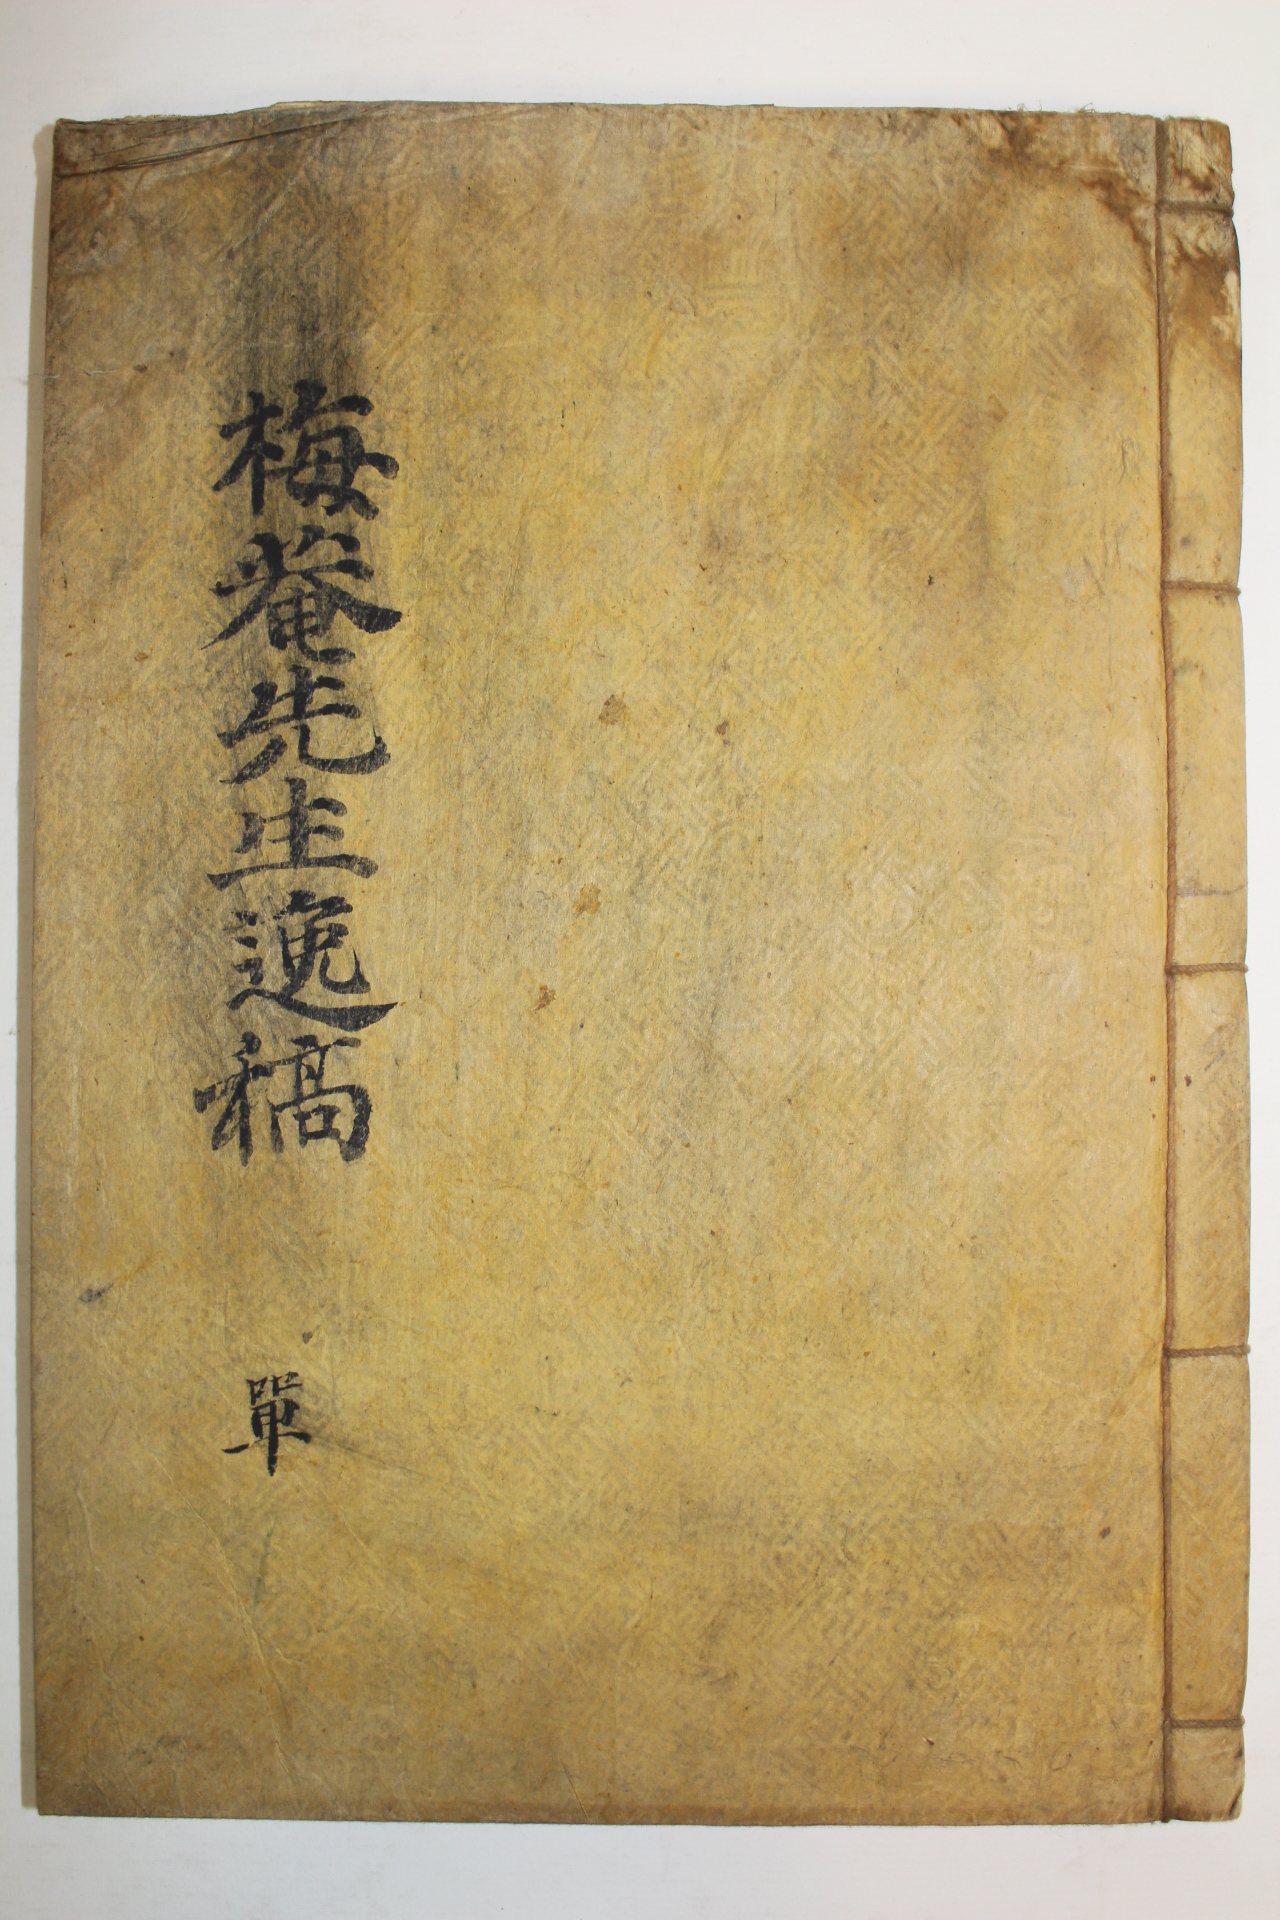 梅菴先生逸稿
單